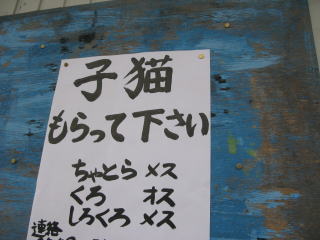 子猫
もらって下さい
ちゃとら メス
くろ オス
しろくろ メス
連絡